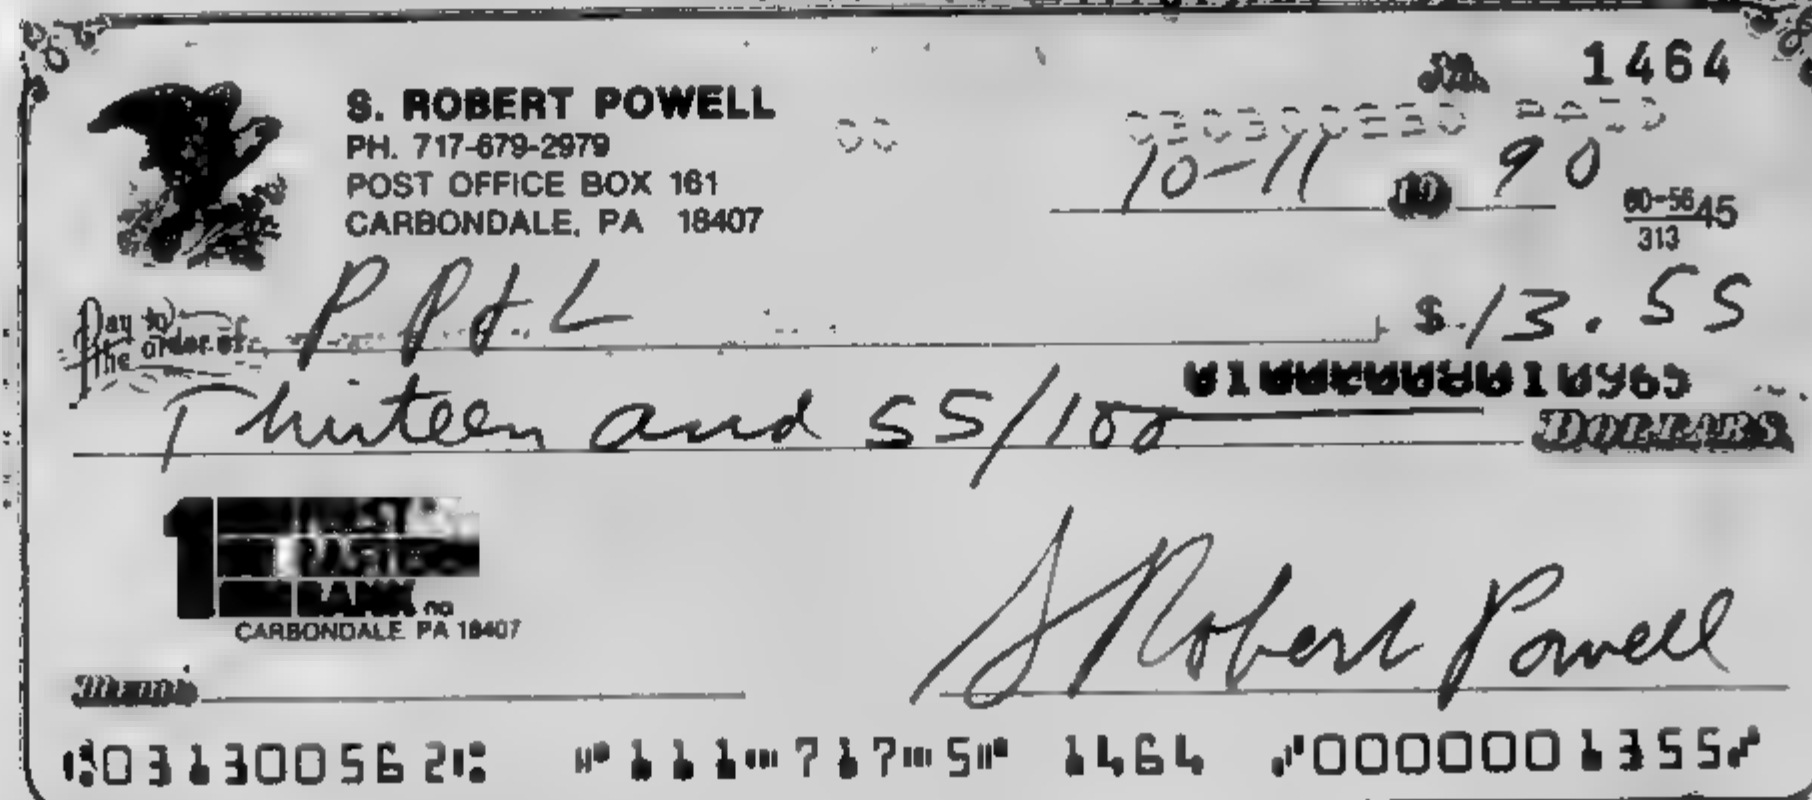 1464
S. ROBERT POWELL
PH. 717-679-2979
POST OFFICE BOX 161
CARBONDALE, PA 18407
10-11 19 90
60-56 45
313
Pay to the order of P P & L $ 13.55
Thirteen and 55/100 DOLLARS
BANK na
CARBONDALE PA 18407
Memo
S Robert Powell
⑆031300562⑆ ⑈111⑉717⑉5⑈ 1464 ⑇0000001355⑇